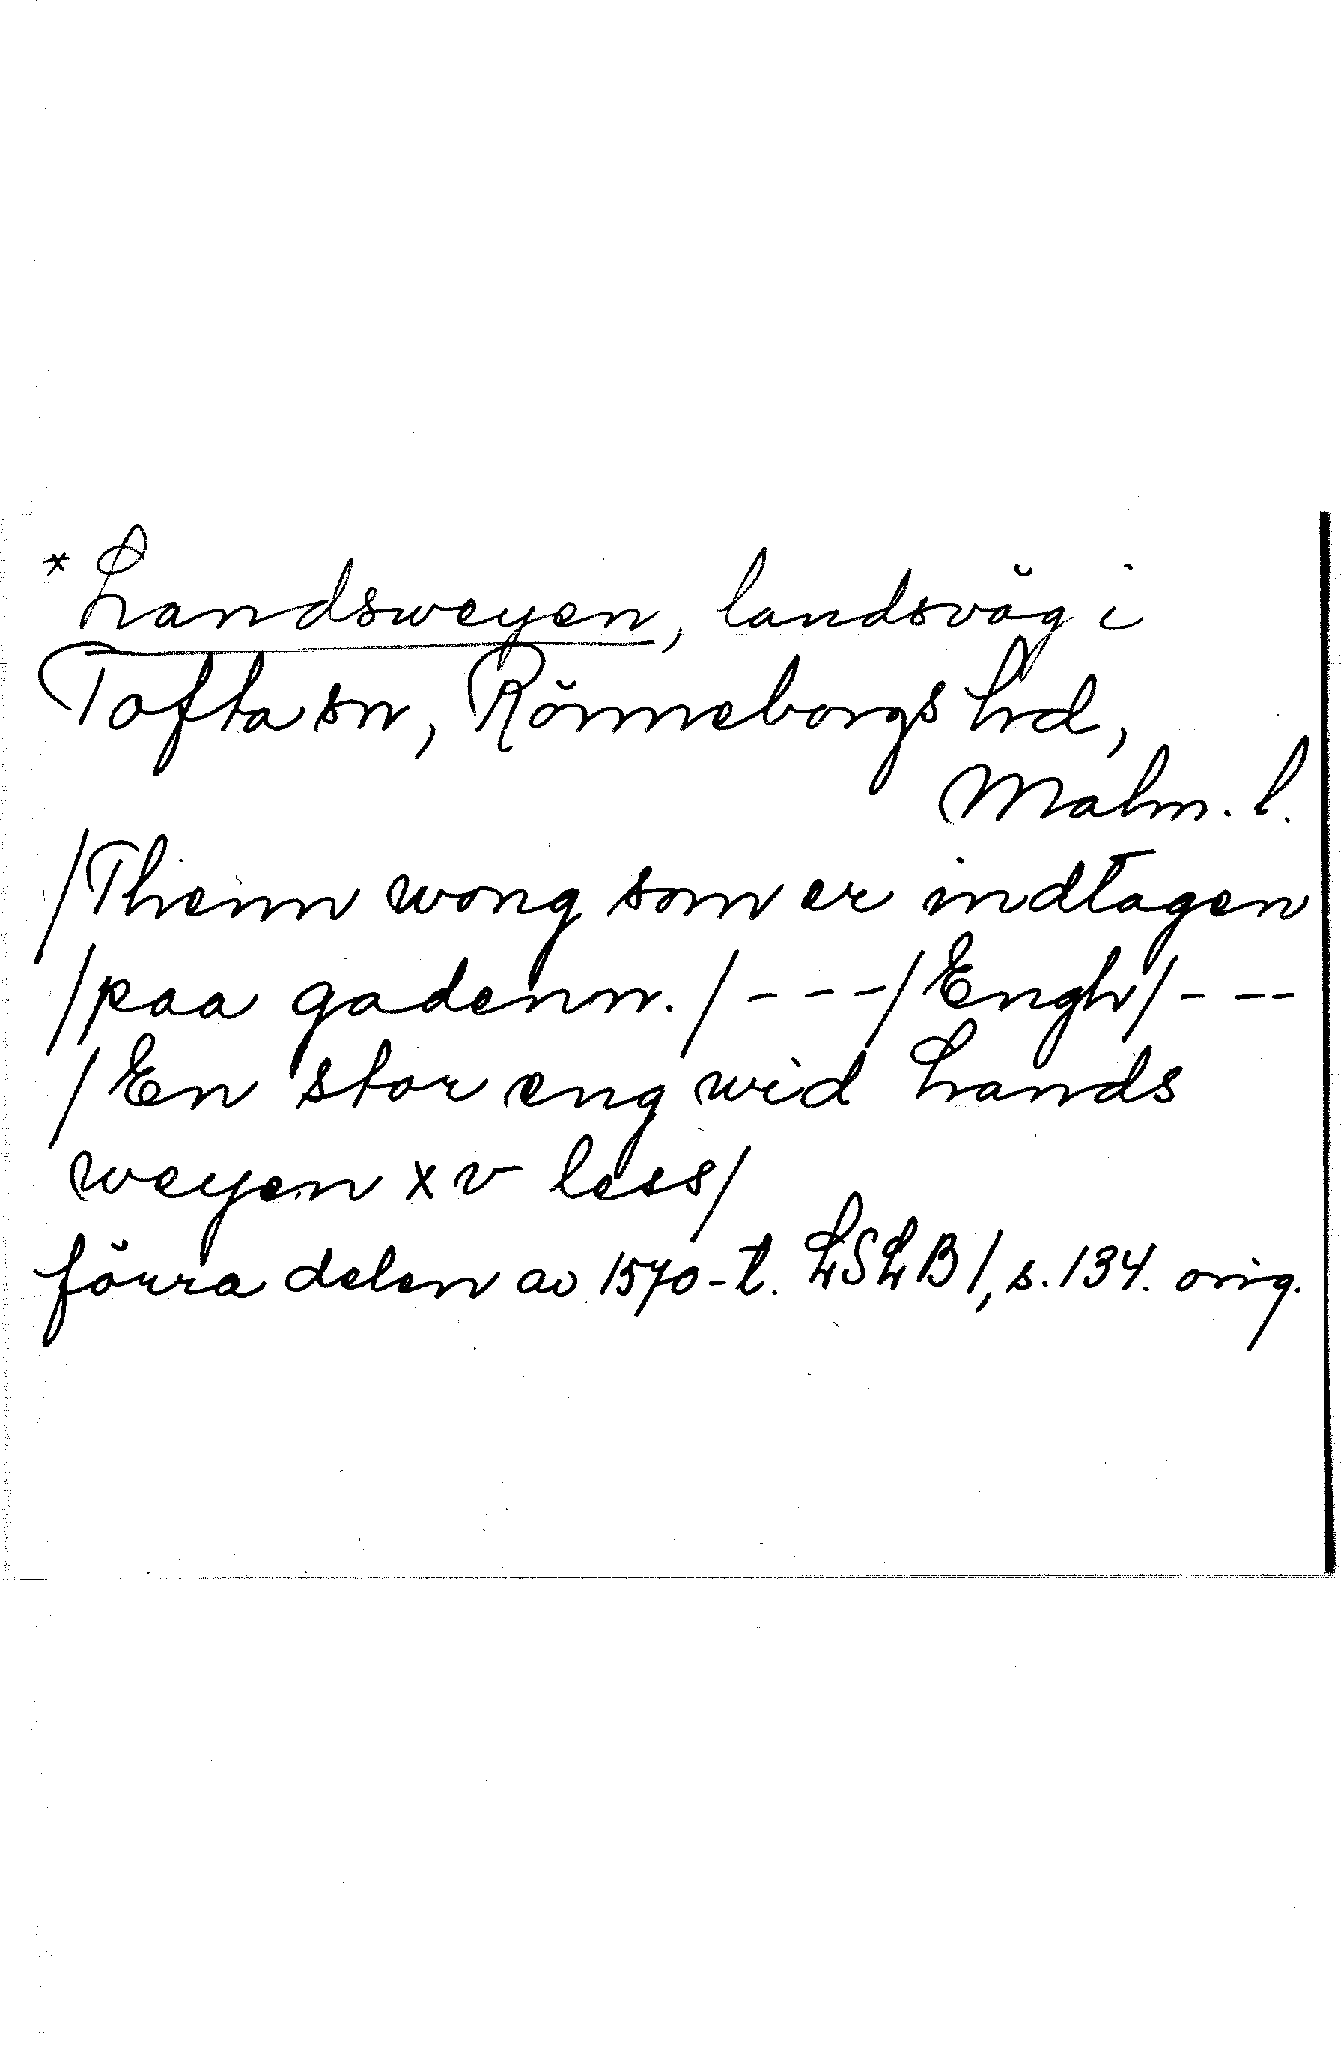 * Landsweyen, landsväg i
Tofta sn, Rönnebergs hd,
Malm. l.
/Thenn wong som er indtagen
/paa gadenn./---/Engh/---
/En stor eng wid Lands
weyen xv less/
förra delen av 1570-t. LSLB1, s. 134. orig.